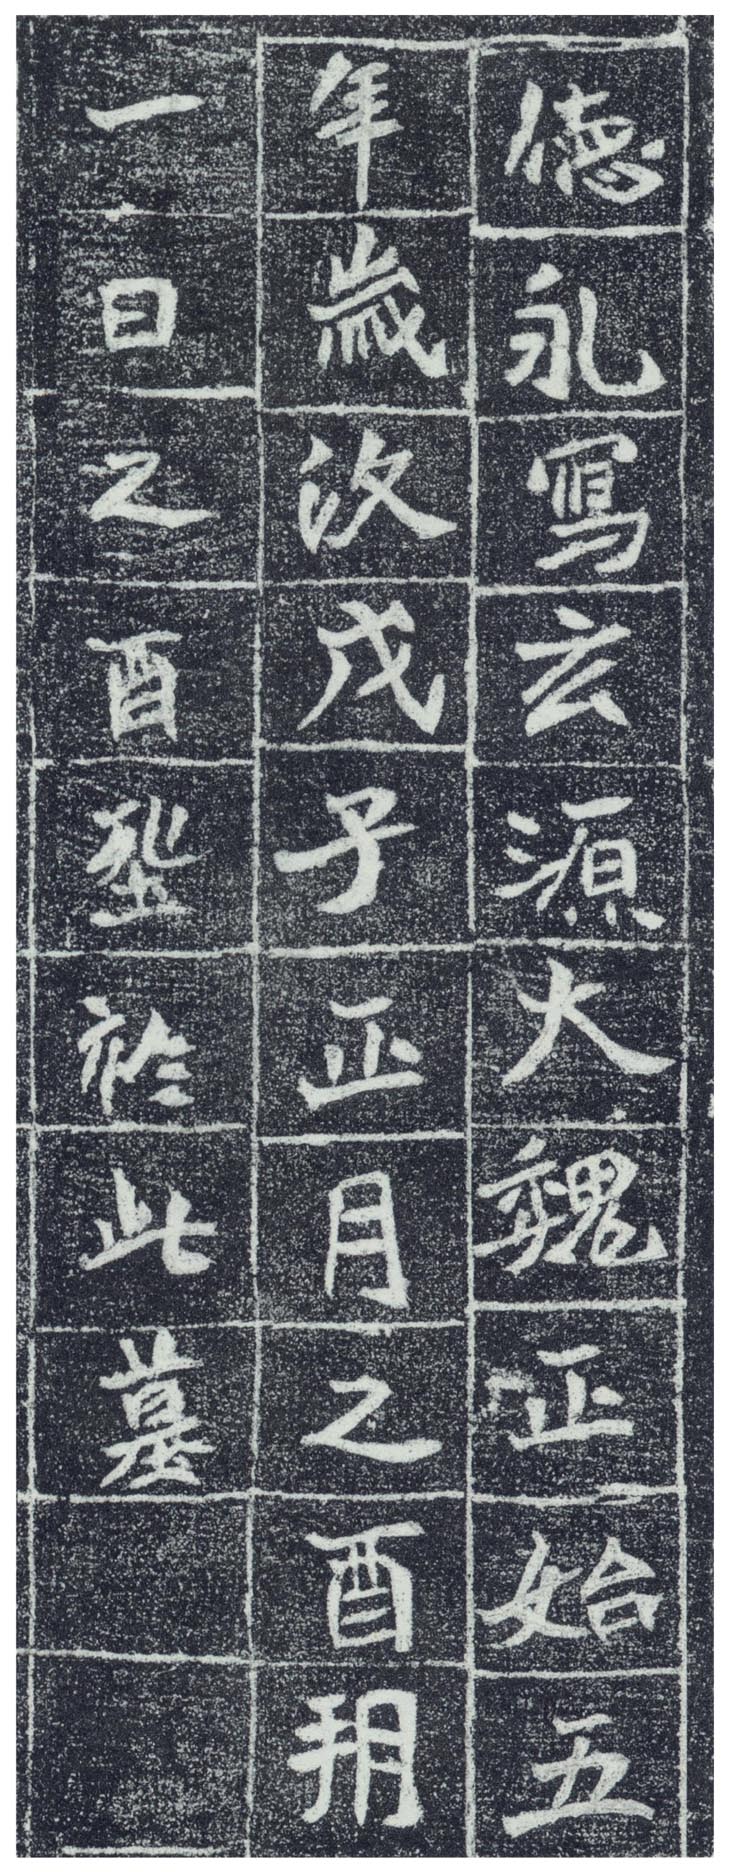 德永寫玄源大魏正始五
年歲次戊子正月之酉朔
一日之酉塟於此墓